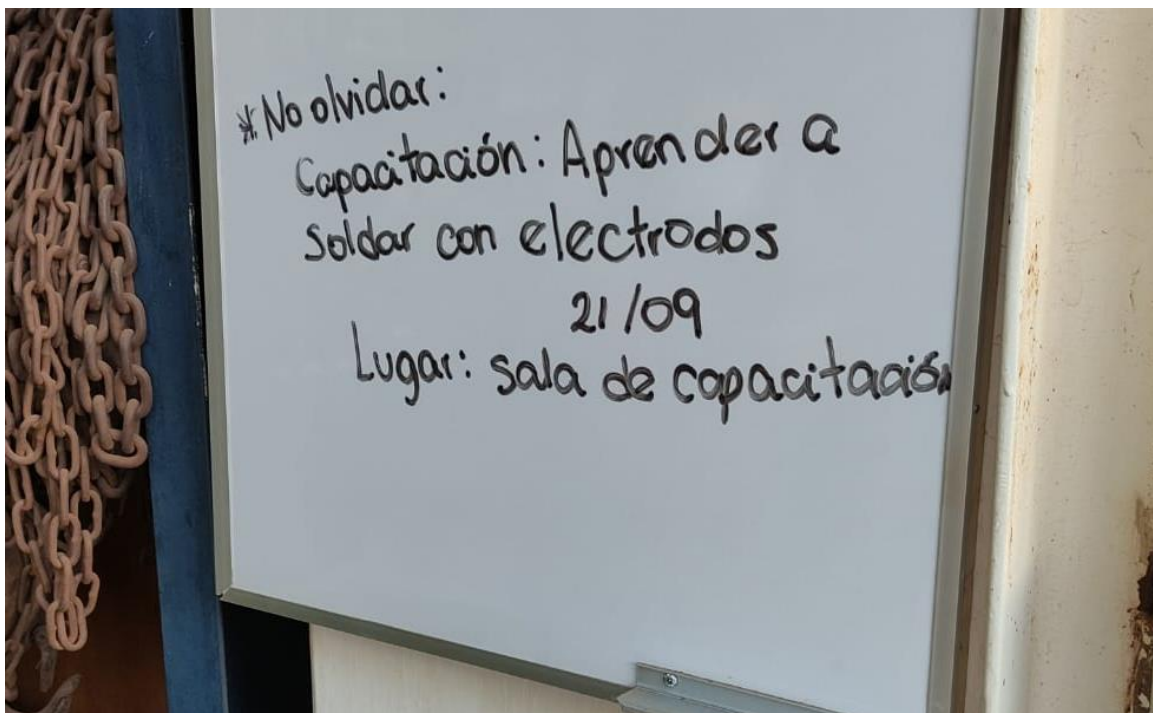 *No olvidar:
Capacitación: Aprender a
soldar con electrodos
21/09
Lugar: sala de capacitación